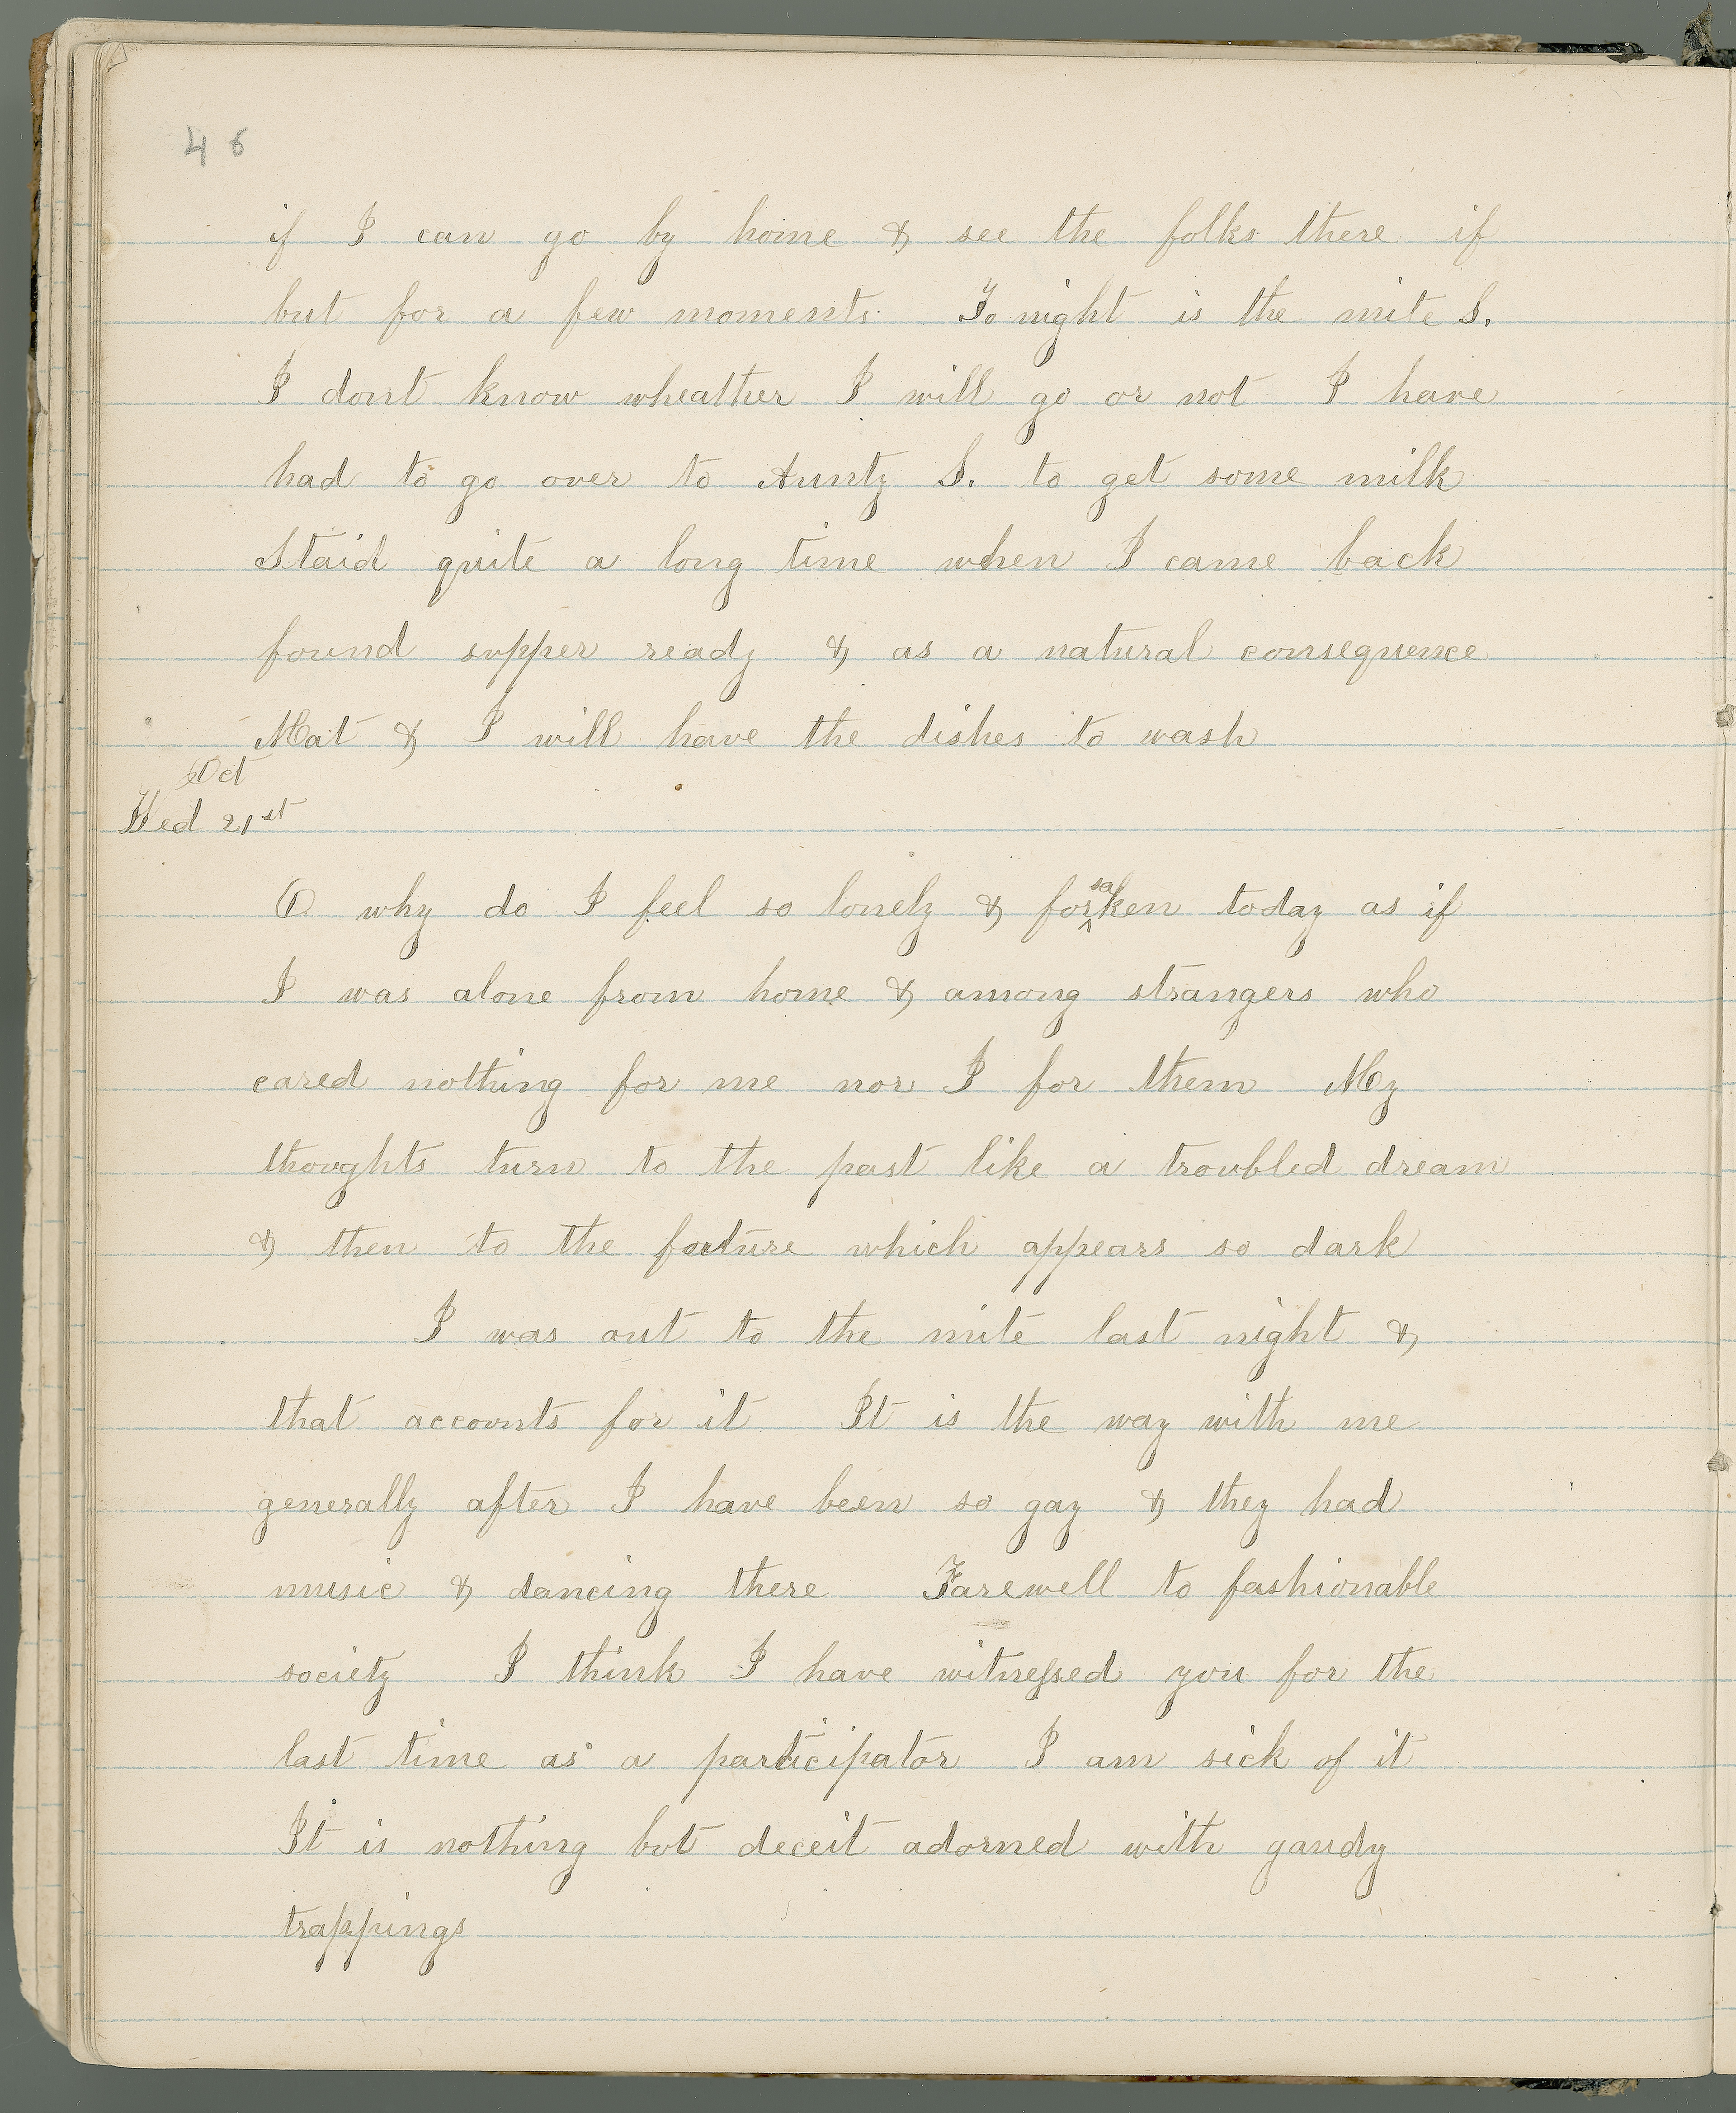 46
if I can go by home & see the folks there if
but for a few moments. To night is the mite S.
I dont know wheather I will go or not I have
had to go over to Aunty S. to get some milk
Staid quite a long time when I came back
found supper ready & as a natural consequence
Mat & I will have the dishes to wash
Oct
Wed 21st
O why do I feel so lonely & forsaken today as if
I was alone from home & among strangers who
cared nothing for me nor I for them My
thoughts turn to the past like a troubled dream
& then to the fouture which appears so dark
I was out to the mite last night &
that accounts for it It is the way with me
generally after I have been so gay & they had
music & dancing there Farewell to fashionable
society I think I have witnessed you for the
last time as a participator I am sick of it
It is nothing but deceit adorned with gaudy
trappings